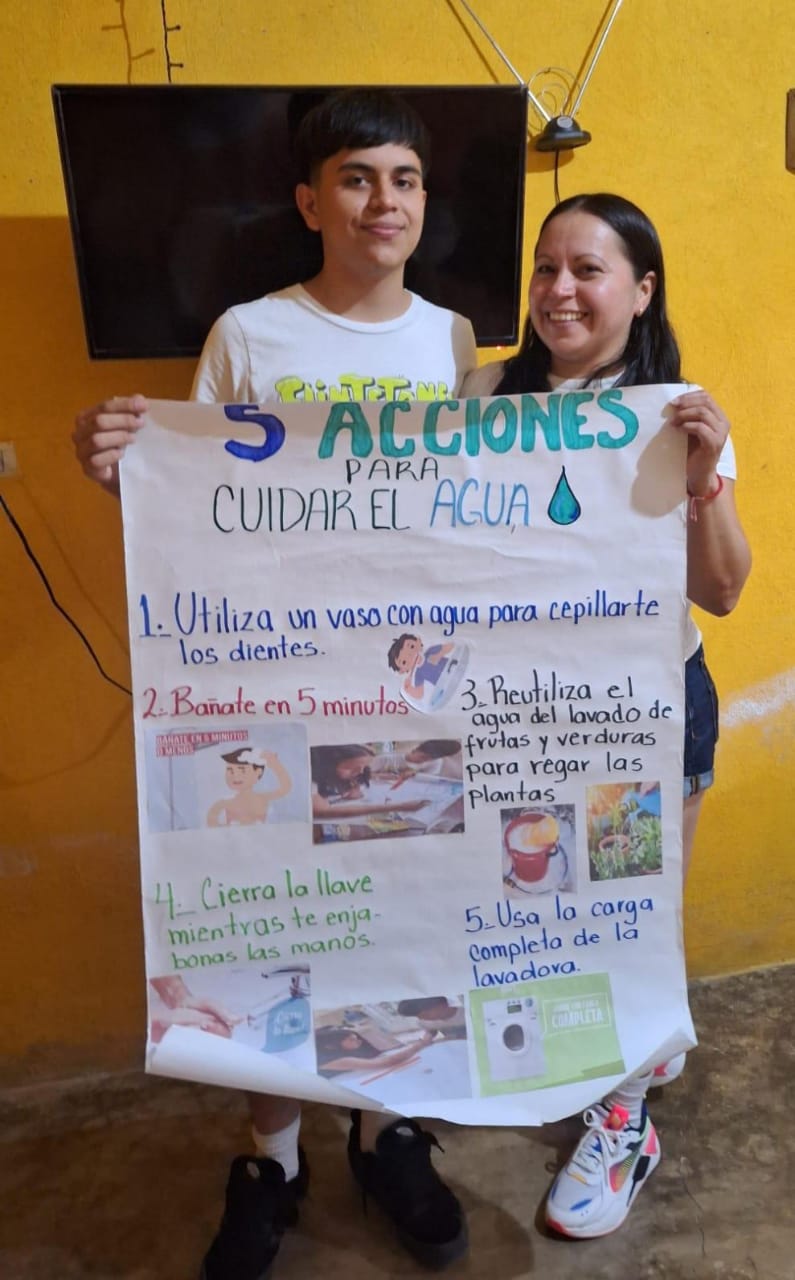 5 ACCIONES
PARA
CUIDAR EL AGUA
1.- Utiliza un vaso con agua para cepillarte
los dientes.
2.- Bañate en 5 minutos
BÁÑATE EN 5 MINUTOS
O MENOS
3.- Reutiliza el
agua del lavado de
frutas y verduras
para regar las
plantas
4.- Cierra la llave
mientras te enja-
bonas las manos.
5.- Usa la carga
completa de la
lavadora.
COMPLETA